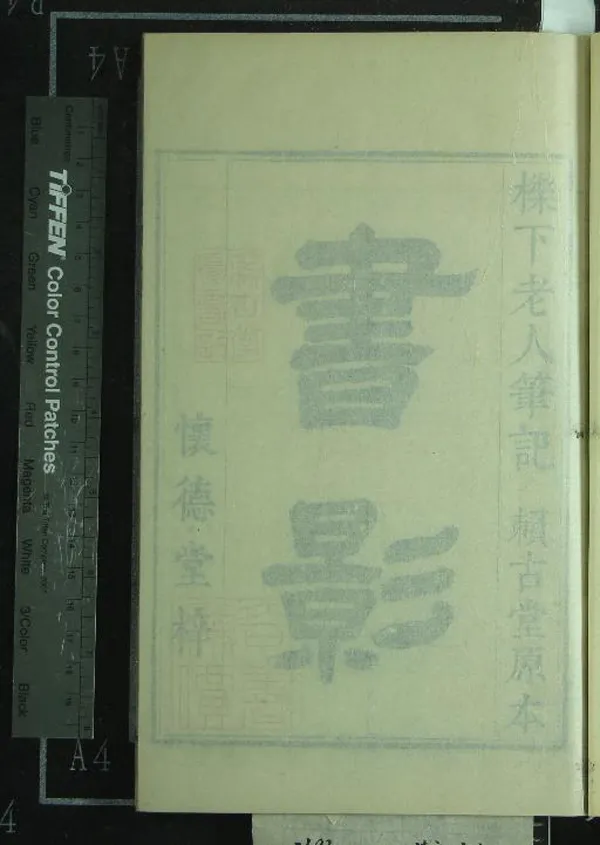 櫟下老人筆記 賴古堂原本
書影
懷德堂梓
A4
A4
4
Centimetres
TIFFEN Color Control Patches
Blue
Cyan
Green
Yellow
Red
Magenta
White
3/Color
Black